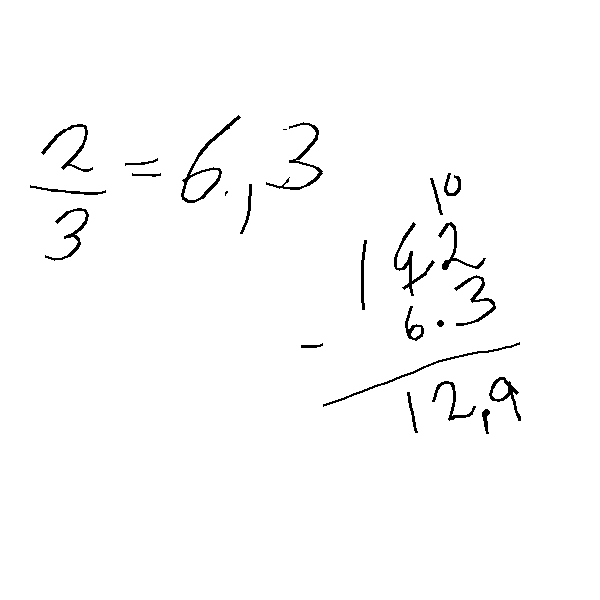 2/3 = 6,3
10
192
- 6.3
12,9